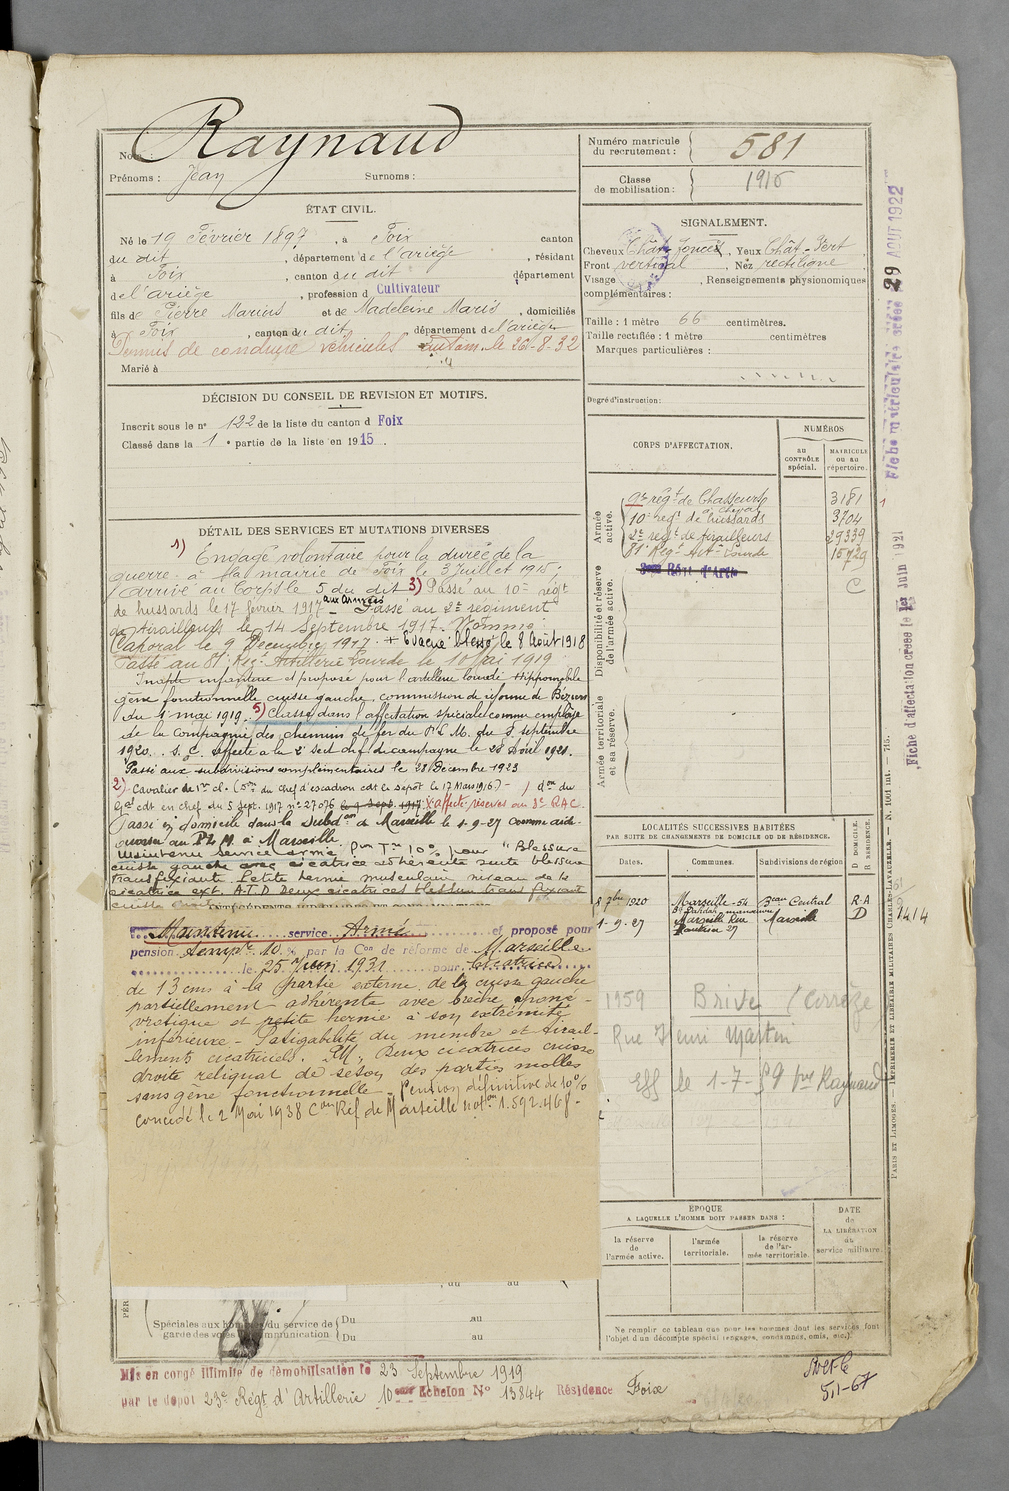 Raynaud
Nom :
Prénoms : Jean Surnoms :
Numéro matricule du recrutement : 581
Classe de mobilisation : 1915
ÉTAT CIVIL.
Né le 19 Février 1897, à Foix canton
du dit, département de l'ariège, résidant
à Foix, canton du dit département
de l'ariège, profession d Cultivateur
fils de Pierre Marius et de Madeleine Maris, domiciliés
à Foix, canton du dit, département de l'ariège
Permis de conduire véhicules autom. le 26-8-32
Marié à
SIGNALEMENT.
Cheveux Chât. foncés, Yeux Chât-Vert
Front vertical, Nez rectiligne
Visage , Renseignements physionomiques
complémentaires :
Taille : 1 mètre 66 centimètres.
Taille rectifiée : 1 mètre centimètres
Marques particulières :
Degré d'instruction :
DÉCISION DU CONSEIL DE REVISION ET MOTIFS.
Inscrit sous le n° 122 de la liste du canton d Foix
Classé dans la 1e partie de la liste en 1915.
DÉTAIL DES SERVICES ET MUTATIONS DIVERSES
1) Engagé volontaire pour la durée de la
guerre à la mairie de Foix le 3 Juillet 1915;
arrivé au Corps le 5 du dit 3) Passé au 10e régt
de hussards le 17 février 1917 aux Armées Passé au 2e régiment
de tirailleurs le 14 Septembre 1917. Nommé
Caporal le 9 Décembre 1917. + Evacué blessé le 8 Août 1918
Passé au 81 Reg. Artillerie Lourde le 10 Mai 1919
Inapte infanterie et proposé pour l'artillerie lourde Hippomobile
gène fonctionnelle cuisse gauche, commission de réforme de Béziers
du 1 mai 1919. 5) Classé dans l'affectation spéciale comme employé
de la Compagnie des chemins de fer du P L M. du 8 septembre
1920. S. C. affecté à la 2e Sect ch. f. de campagne le 28 Avril 1921.
Passé aux subdivisions complémentaires le 28 Décembre 1923
2) Cavalier de 1re cl. (Don du chef d'escadron cdt le dépôt le 17 Mars 1916) - / don du
Gal cdt en chef du 5 Sept. 1917 n° 27076 le 9 Sept. 1917 affecté réserve au 3e RAC.
Passé en domicile dans la Subdon de Marseille le 1-9-27 comme aide-
ouvrier au P L M à Marseille.
Maintenu service armé pon Tre 10% pour "Blessure
cuisse gauche avec cicatrice adhérente suite blessure
transfixiante. Petite hernie musculaire niveau de la
cicatrice ext. A.T.D Deux cicatrices blessure trans fixiante
Maintenu service Armé et proposé pour
pension temp. 10 % par la Con de réforme de Marseille
le 25 Juin 1931 pour Cicatrice
de 13 cms à la partie externe de la cuisse gauche
partiellement adhérente avec brèche aponé-
vrotique et petite hernie à son extrémité
inférieure - Fatigabilité du membre et tirail-
lements cicatriciels. Deux cicatrices cuisse
droite reliquat de séton des parties molles
sans gêne fonctionnelle - Pension définitive de 10%
concédé le 2 Mai 1938 Con Ref de Marseille 1.592.468-
CORPS D'AFFECTATION.
NUMÉROS
au CONTRÔLE spécial.
MATRICULE ou au répertoire.
Armée active.
9e régt de Chasseurs à cheval 3181
10e régt de hussards 3704
2e régt de tirailleurs 29339
81e Regt Art. Lourde 15729
C
Disponibilité et réserve de l'armée active.
Armée territoriale et sa réserve.
LOCALITÉS SUCCESSIVES HABITÉES
PAR SUITE DE CHANGEMENTS DE DOMICILE OU DE RÉSIDENCE.
Dates. Communes. Subdivisions de région D DOMICILE. R RÉSIDENCE.
8 7bre 1920 Marseille - 54 Beau Central R.A
1-9-27 Marseille Rue Marseille D
1414
1959 Brive (Corrèze
Rue Henri Martin
Eff le 1-7-59 Raynaud
ÉPOQUE
A LAQUELLE L'HOMME DOIT PASSER DANS :
la réserve de l'armée active.
l'armée territoriale.
la réserve de l'armée territoriale.
DATE de LA LIBÉRATION du service militaire.
Ne remplir ce tableau que pour les hommes dont les services font
l'objet d'un décompte spécial (engagés, condamnés, omis, etc.).
du au
Spéciales aux hommes du service de
garde des voies de communication
Du au
Du au
Mis en congé illimité de démobilisation le 23 Septembre 1919
par le dépôt 23e Régt d'Artillerie 10eme Echelon N° 13844 Résidence Foix
511-67
Fiche matriculaire créée 29 AOUT 1922
Fiche d'affectation créée le 1er Juin 1921
PARIS ET LIMOGES. — IMPRIMERIE ET LIBRAIRIE MILITAIRES CHARLES-LAVAUZELLE. — N. 1001 int. — 715.